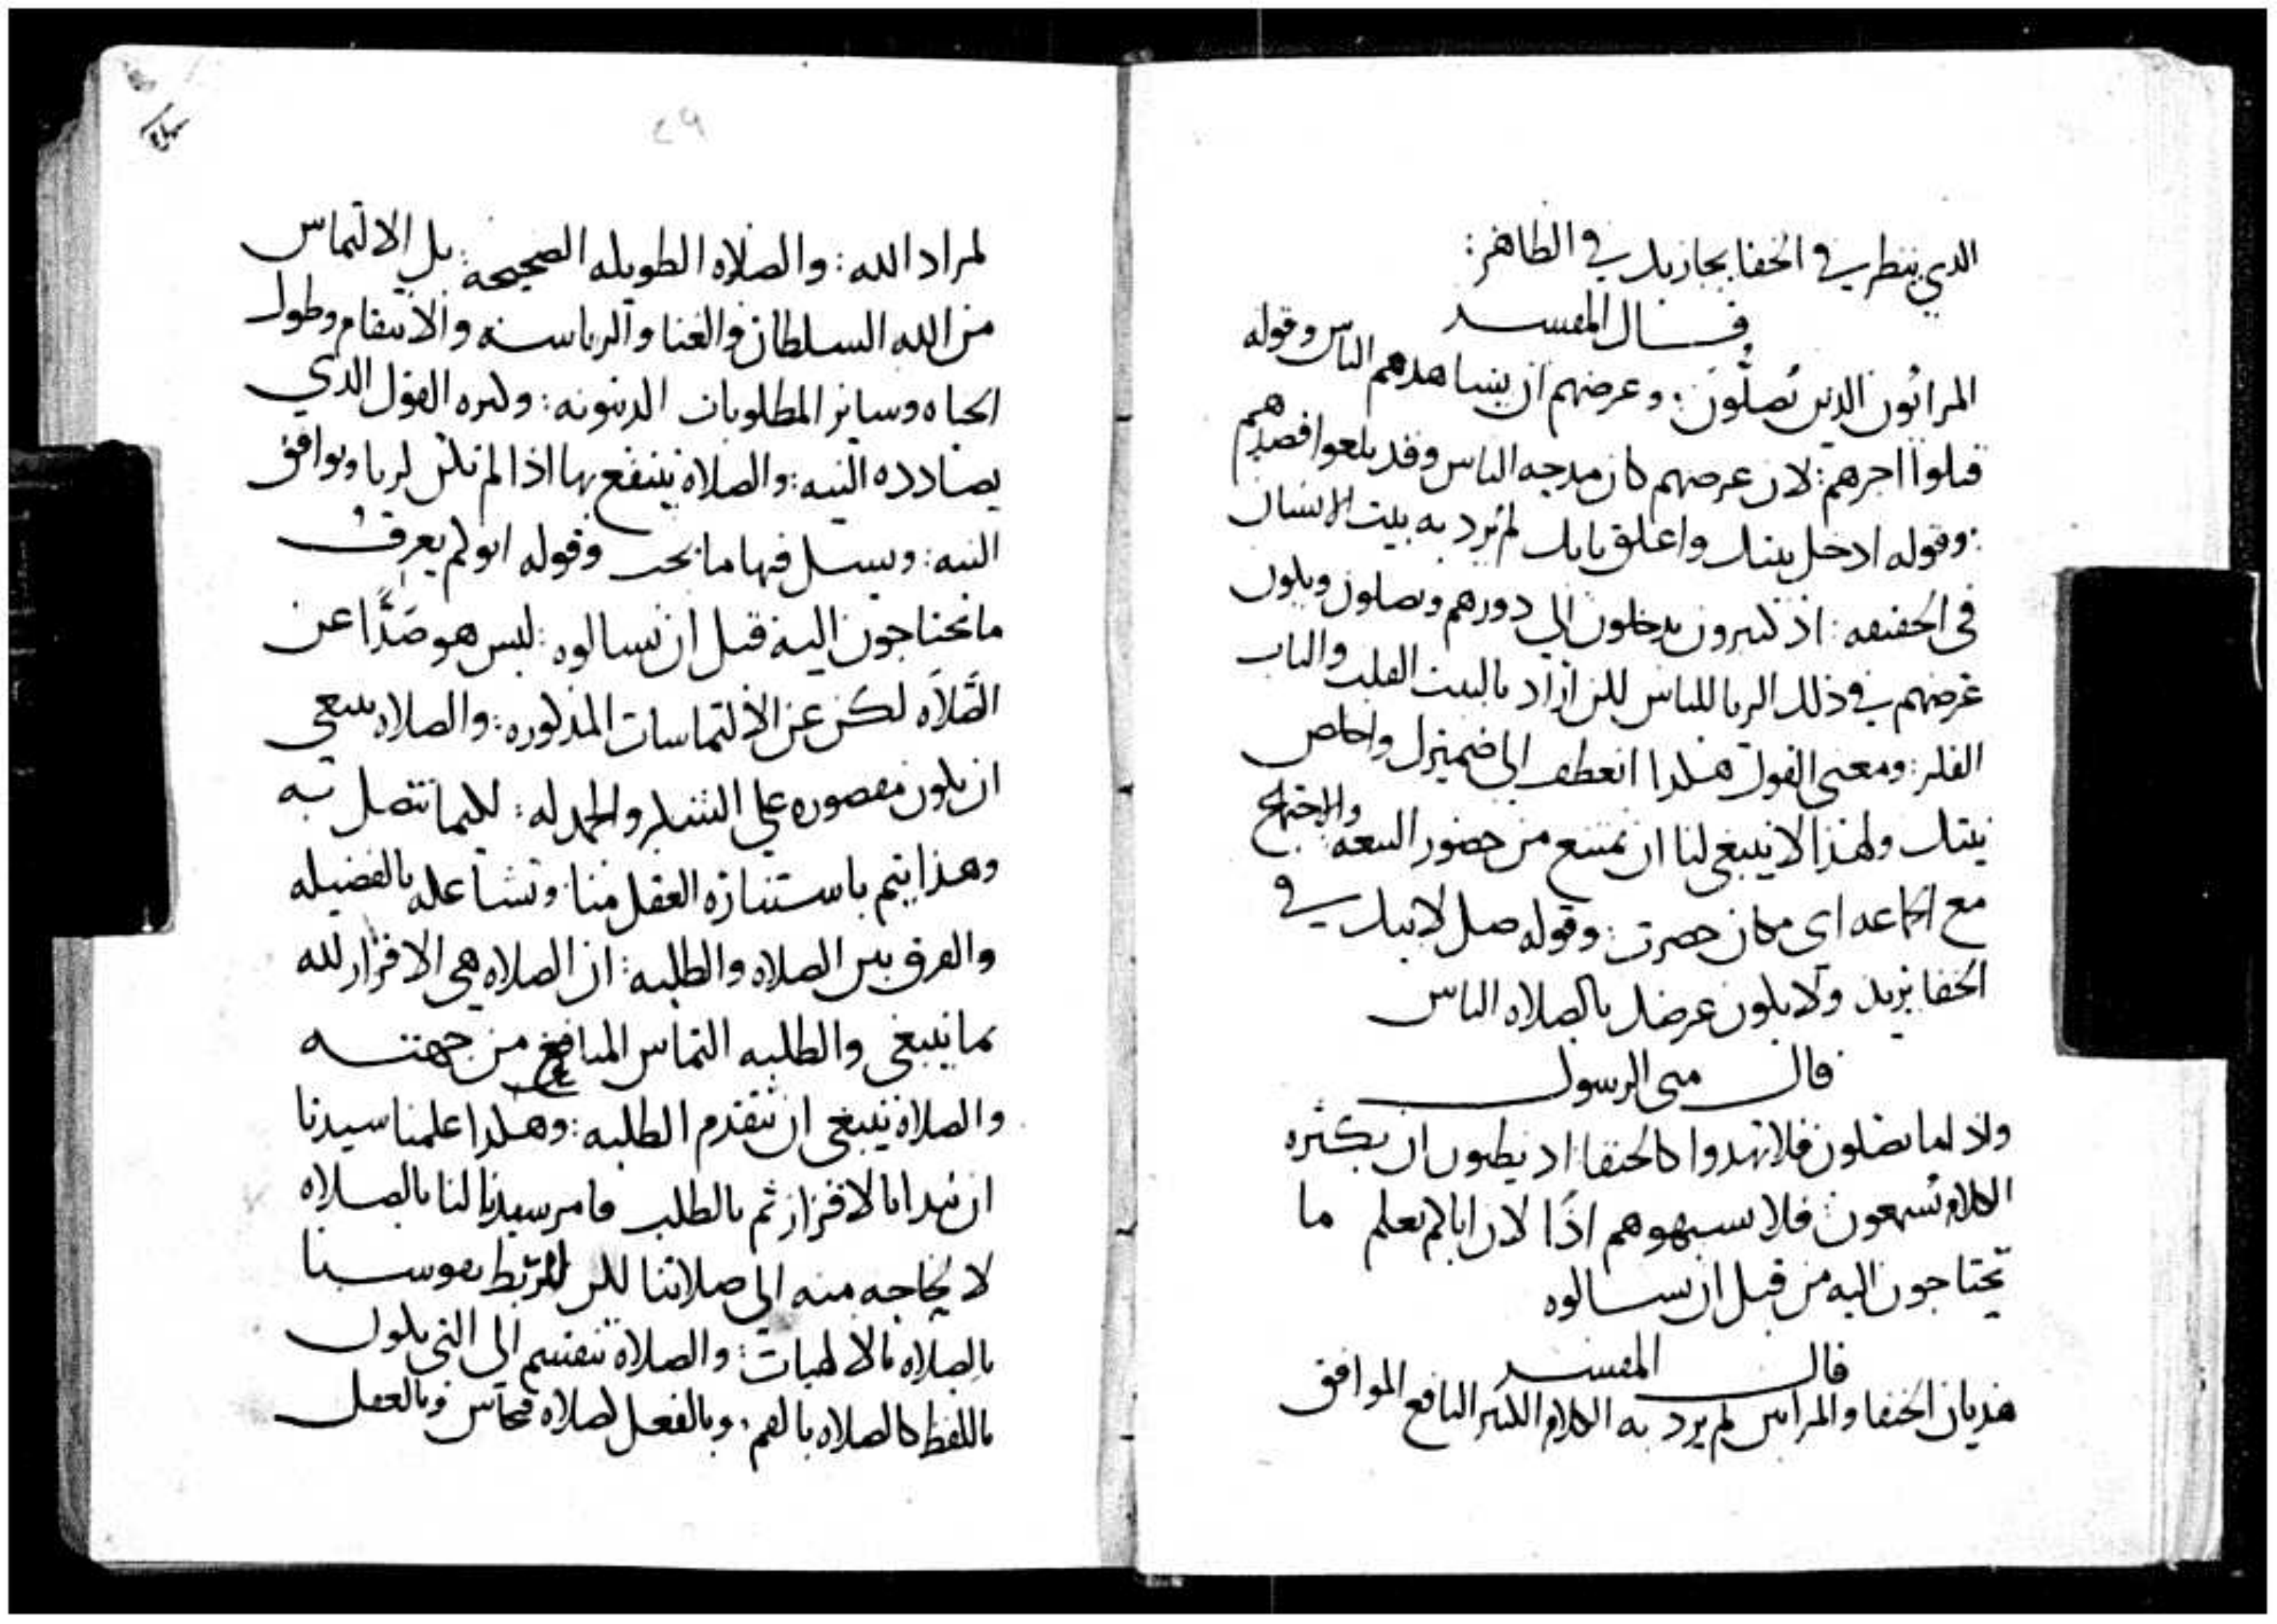 الدي ينظر في الخفا يجازيك في الظاهر:
قال المفسر
المراٮُون الدين يُصلُّون: وعرضهم ان يشاهدهم الناس وقوله
قبلوا اجرهم: لان عرضهم كان مدحه الناس وقد بلعوا قصدهم
: وقوله ادخل بيتك واعلق بابك لم يُرد به بيت الانسان
في الحقيقه: اذ كثيرون يدخلون الي دورهم ويصلون ويكون
غرضهم في ذلك الريا للناس لكن اراد بالبيت القلب والباب
الفكر: ومعنى القول هكدا انعطف الى ضميرك واخلص
نيتك ولهذا لا ينبغي لنا ان نمتنع من حضور البيعه والاجتماع
مع الجماعه اى مكان حضرت: وقوله صل لابيك في
الخفا يريد ولا يكون عرضك بالصلاه الناس
قال متى الرسول
واذا ما تصلون فلا تهدوا كالحنفا اذ يظنون ان بكثره
الكلام يُسمعون فلا تشبهوهم اذًا لان ابا لم يعلم ما
تحتاجون اليه من قبل ان تسالوه
قال المفسر
هديان الحنفا والمرايين لم يرد به الكلام الكثير النافع الموافق
٢٩
لمراد الله: والصلاه الطويله الصحيحة: بل الالتماس
من الله السلطان والغنا والرياسه والانتقام وطول
الحياه وساير المطلوبات الدنيويه: وكثره القول الدي
يضادده النيه: والصلاة ينتفع بها اذا لم تكن لريا ويوافق
النيه: ويسل فيها ما يحب وقوله ابوكم يعرف
ما تحتاجون اليه قبل ان تسالوه: ليس هو صَدًّا عن
الصَّلاَه لكن عن الالتماسات المذكوره: والصلاه ينبعي
ان يكون مقصوره على الشكر والحمد له: لكيما تتصل به
وهذا يتم باستنارة العقل منا وتشاعله بالفضيله
والفرق بين الصلاه والطلبه: ان الصلاه هي الاقرار لله
بما ينبغي والطلبه التماس المنافع من جهته
والصلاة ينبغي ان تتقدم الطلبه: وهكدا علمنا سيدنا
ان نبدا بالاقرار ثم بالطلب فامر سيدنا لنا بالصلاه
لا لحاجه منه الي صلاتنا لكن لتربط نفوسنا
بالصلاه بالالهيات: والصلاة تنقسم الي التي يكون
باللفظ كالصلاه بالفم: وبالفعل لصلاه فنحاس وبالعقل